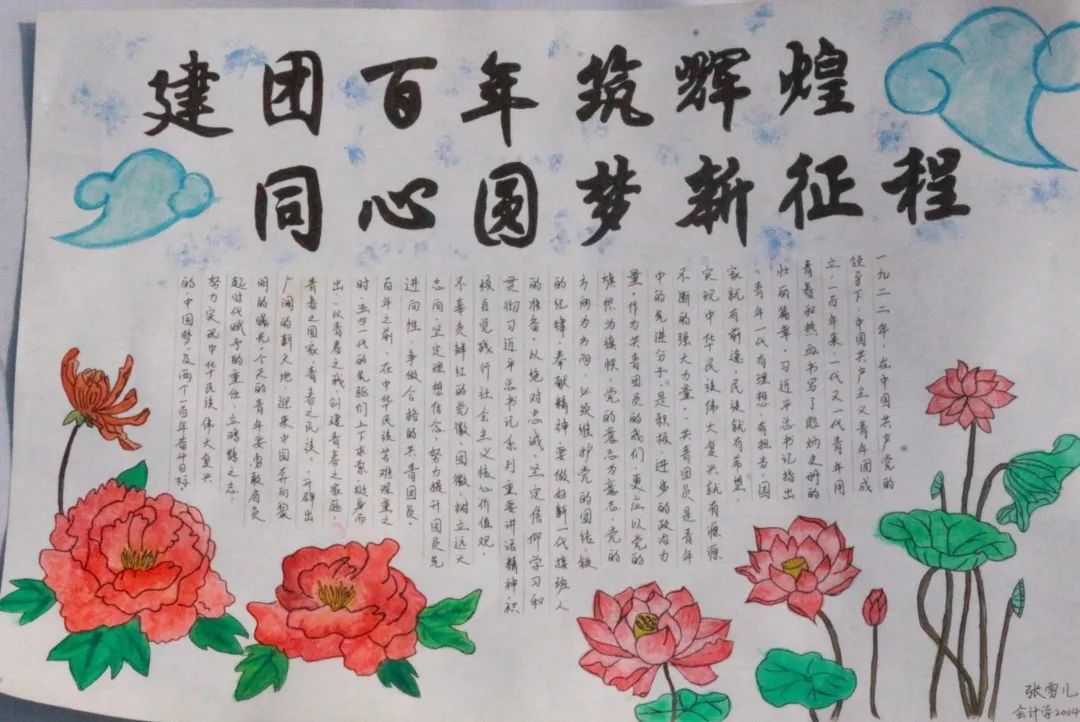 建团百年筑辉煌
同心圆梦新征程
一九二二年，在中国共产党的
领导下，中国共产主义青年团成
立，一百年来，一代又一代青年用
青春和热血书写了彪炳史册的
壮丽篇章，习近平总书记指出
“青年一代有理想，有担当，国
家就有前途，民族就有希望，
实现中华民族伟大复兴就有源源
不断的强大力量”，共青团员是青年
中的先进分子，是积极、进步的政治力
量，作为共青团员的我们，更应以党的
旗帜为旗帜，党的意志为意志，党的
方向为方向，坚决维护党的团结，
的纪律，奉献精神，要做好新一代接班人
的准备，以绝对忠诚、坚定信仰学习和
贯彻习近平总书记系列重要讲话精神，积
极自觉践行社会主义核心价值观，
不辜负鲜红的党徽、团徽，树立远大
志向，坚定理想信念，努力提升团员先
进向性，争做合格的共青团员。
百年之前，在中华民族苦难深重之
时，五四一代的先驱们上下求索，挺身而
出，以青春之我创建青春之家庭，
青春之国家，青春之民族，开辟出
广阔的新天地，迎来中国奔向黎
明的曙光，今天的青年要勇敢肩负
起时代赋予的重任，立鸿鹄之志，
努力实现中华民族伟大复兴
的中国梦，及两个一百年奋斗目标。
张雪儿
会计学2004